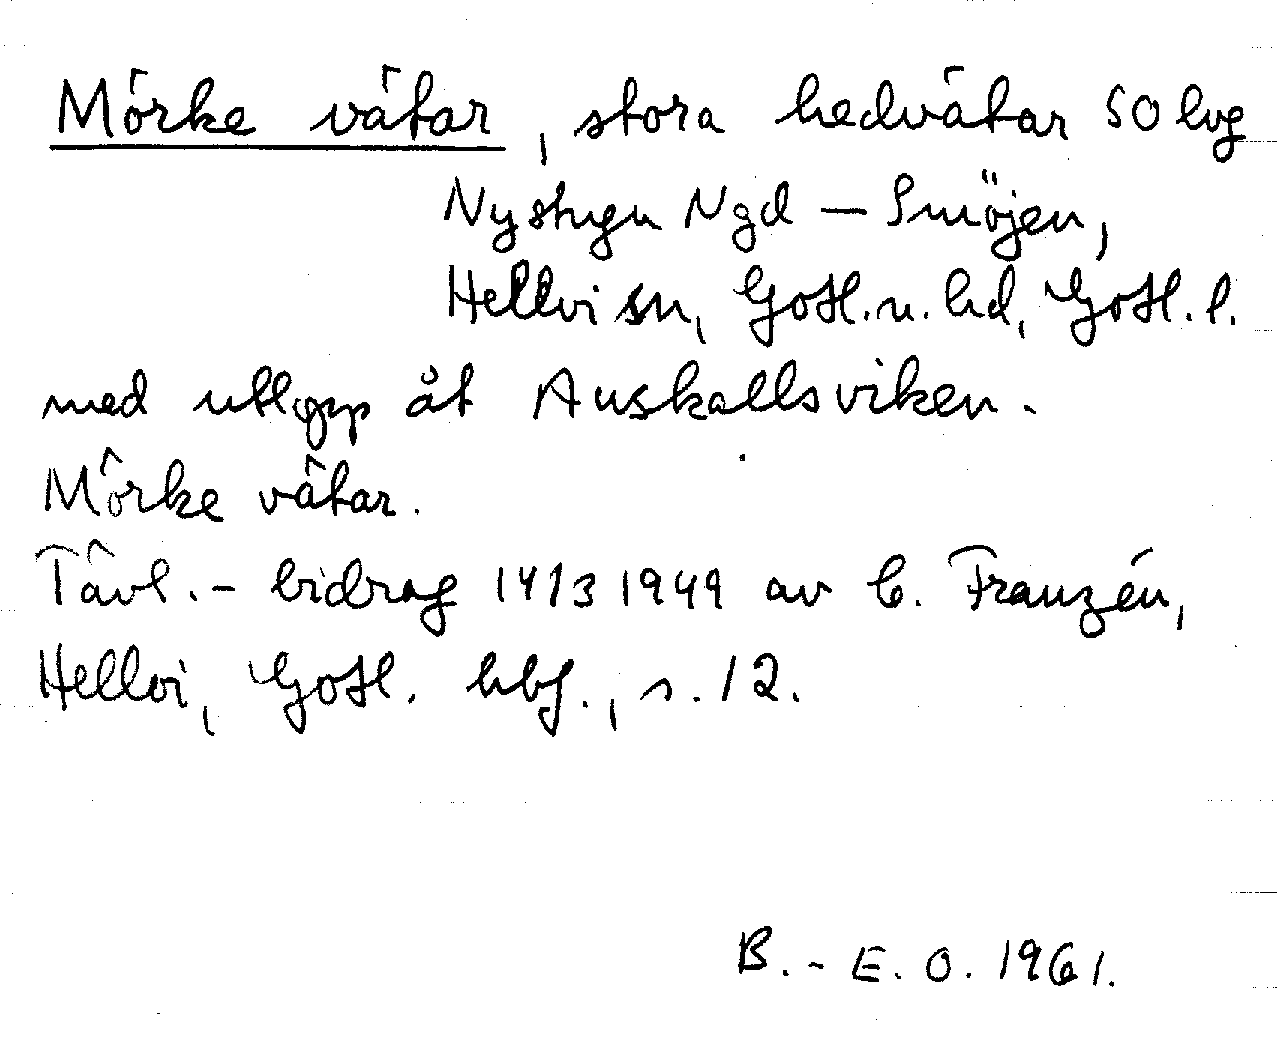 Mörke vätar, stora hedvätar SO lvg
Nystugu Ngd — Smöjen,
Hellvi sn, Gotl. n. hd, Gotl. l.
med utlopp åt Auskallsviken.
Mörke vätar.
Tävl.- bidrag 14/3 1949 av C. Franzén,
Hellvi, Gotl. hbf., s. 12.
B.-E. O. 1961.